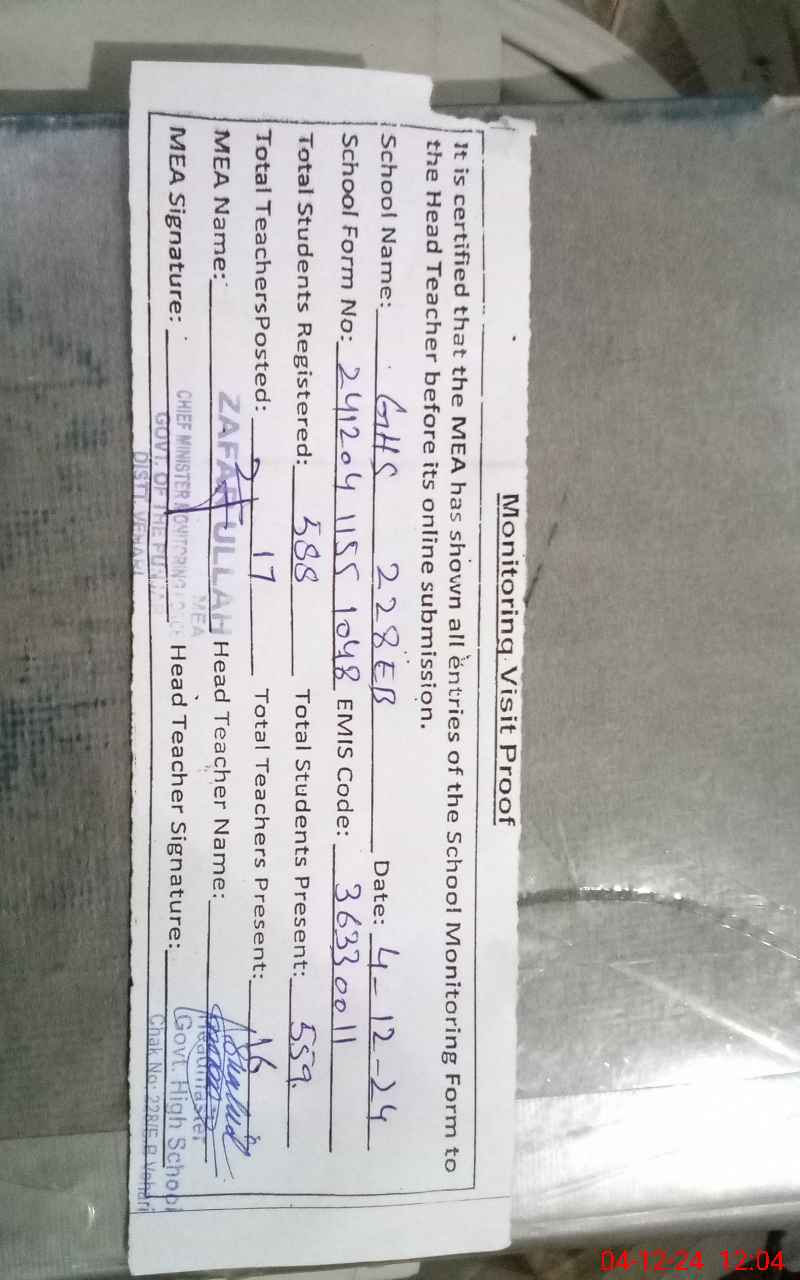 Monitoring Visit Proof
It is certified that the MEA has shown all entries of the School Monitoring Form to
the Head Teacher before its online submission.
School Name: GHS 228EB Date: 4-12-24
School Form No: 241204 1155 1048 EMIS Code: 36330011
Total Students Registered: 588 Total Students Present: 559
Total TeachersPosted: 17 Total Teachers Present: 16
MEA Name: ZAFAR ULLAH Head Teacher Name:
MEA
MEA Signature: Head Teacher Signature:
CHIEF MINISTER MONITORING FORCE
GOVT. OF THE PUNJAB
DISTT. VEHARI
Headmaster
Govt. High School
Chak No: 228/E.B Vehari
04-12-24 12:04